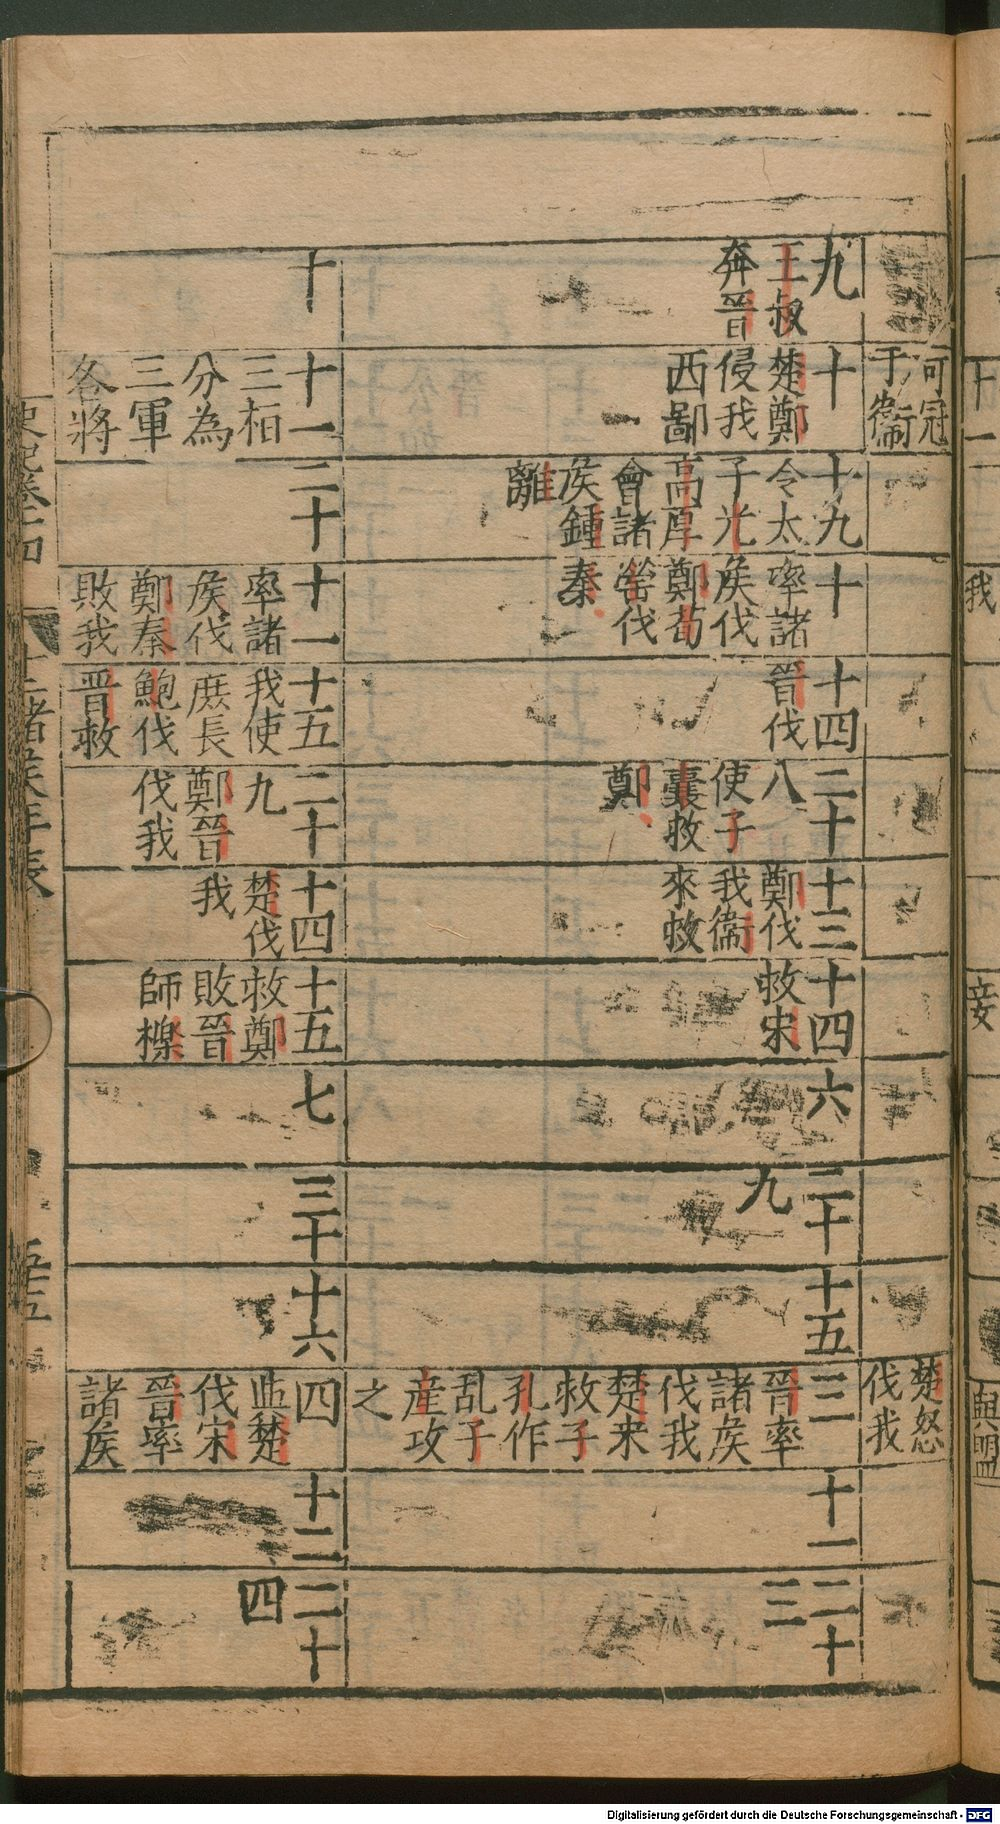 可冠
于衞
楚怒
伐我
九
王叔
奔晉
十
楚鄭
侵我
西鄙
十九
令太
子光
高厚
會諸
矦鍾
離
十
率諸
矦伐
鄭荀
罃伐
秦
十四
晉伐
二十
八
使子
囊救
鄭
十三
鄭伐
我衞
來救
十四
救宋
六
二十
九
十五
三
晉率
諸矦
伐我
楚来
救子
孔作
乱子
産攻
之
十一
二十
三
十
十一
三桓
分為
三軍
各將
二十
十一
率諸
矦伐
鄭秦
敗我
十五
我使
庶長
鮑伐
晉救
二十
九
鄭晉
伐我
十四
楚伐
我
十五
救鄭
敗晉
師櫟
七
三十
十六
四
與楚
伐宋
晉率
諸矦
十二
二十
四
史記卷十四
十二諸矦年表
五十五
下
一
我
妾
與盟
Digitalisierung gefördert durch die Deutsche Forschungsgemeinschaft - DFG